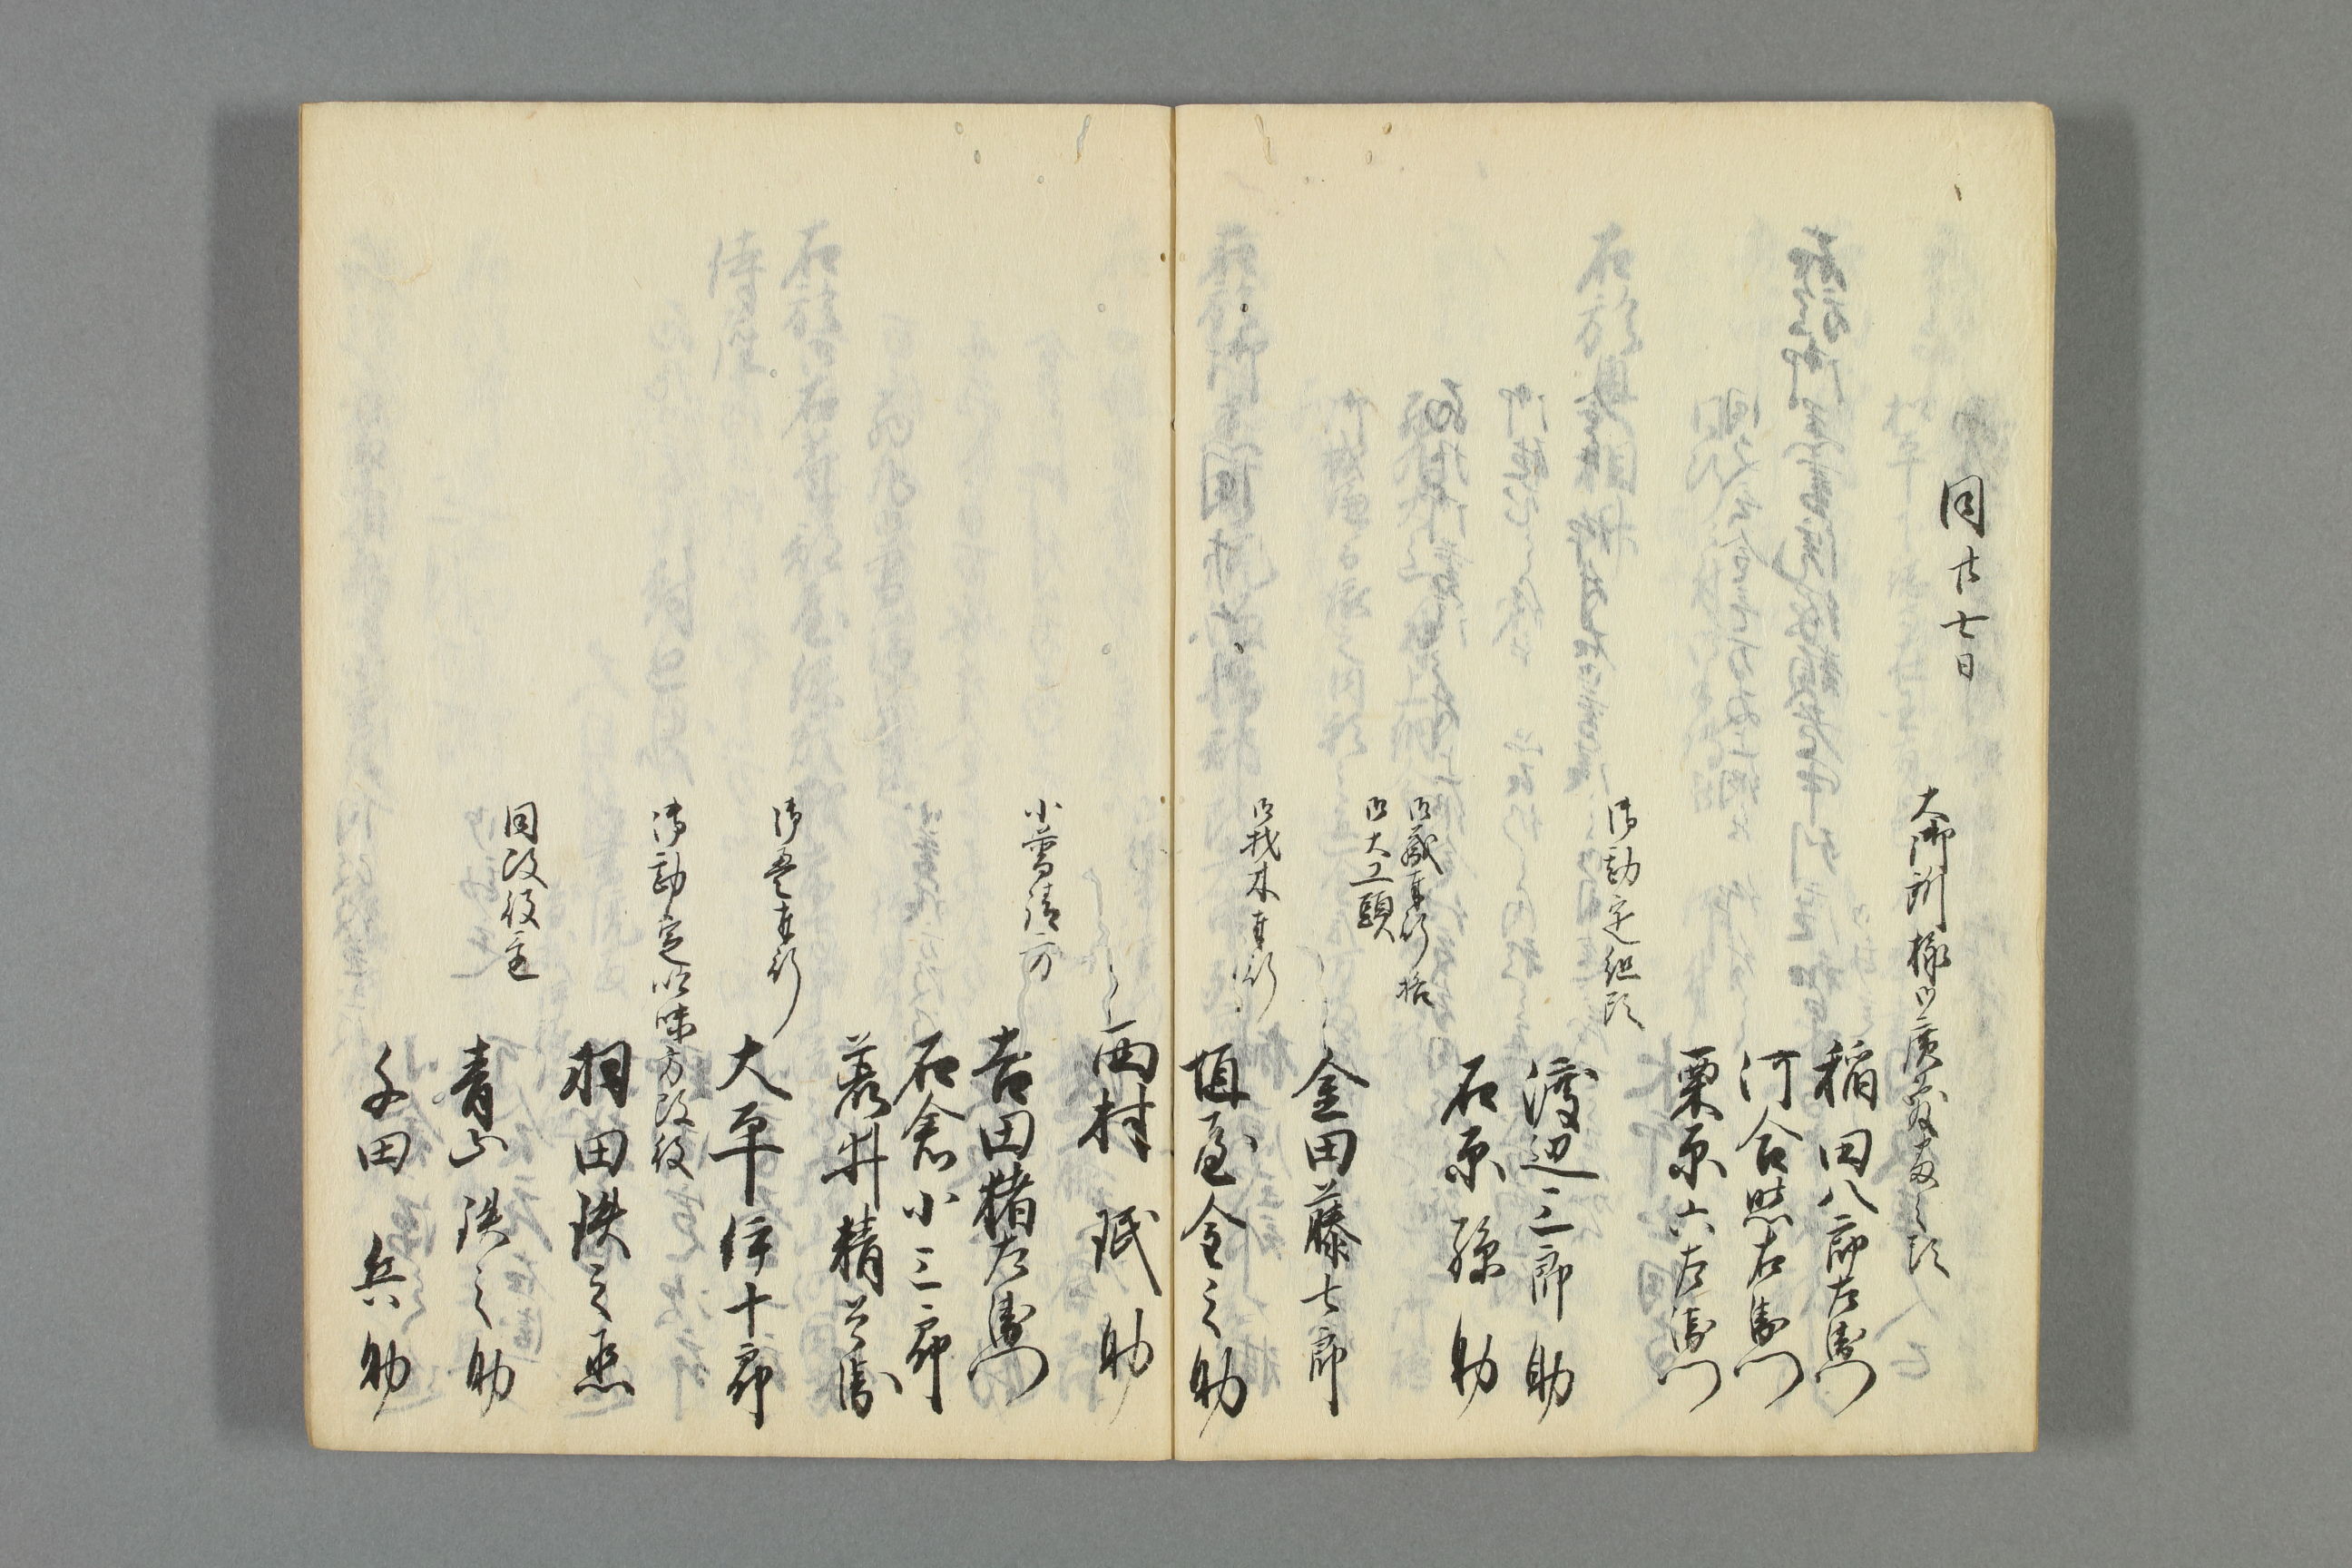 同廿七日
大御所様御広敷番之頭
稲田八郎左衛門
河合熊右衛門
栗原六左衛門
御勘定組頭
渡辺三郎助
石原孫助
御蔵奉行格
御大工頭
金田藤七郎
御材木奉行
垣屋金之助
西村珉助
小普請方
吉田猪左衛門
石倉小三郎
藤井精兵衛
御畳奉行
大平伴十郎
御勘定吟味方改役
羽田鉄之丞
同改役並
青山鉄之助
千田兵助